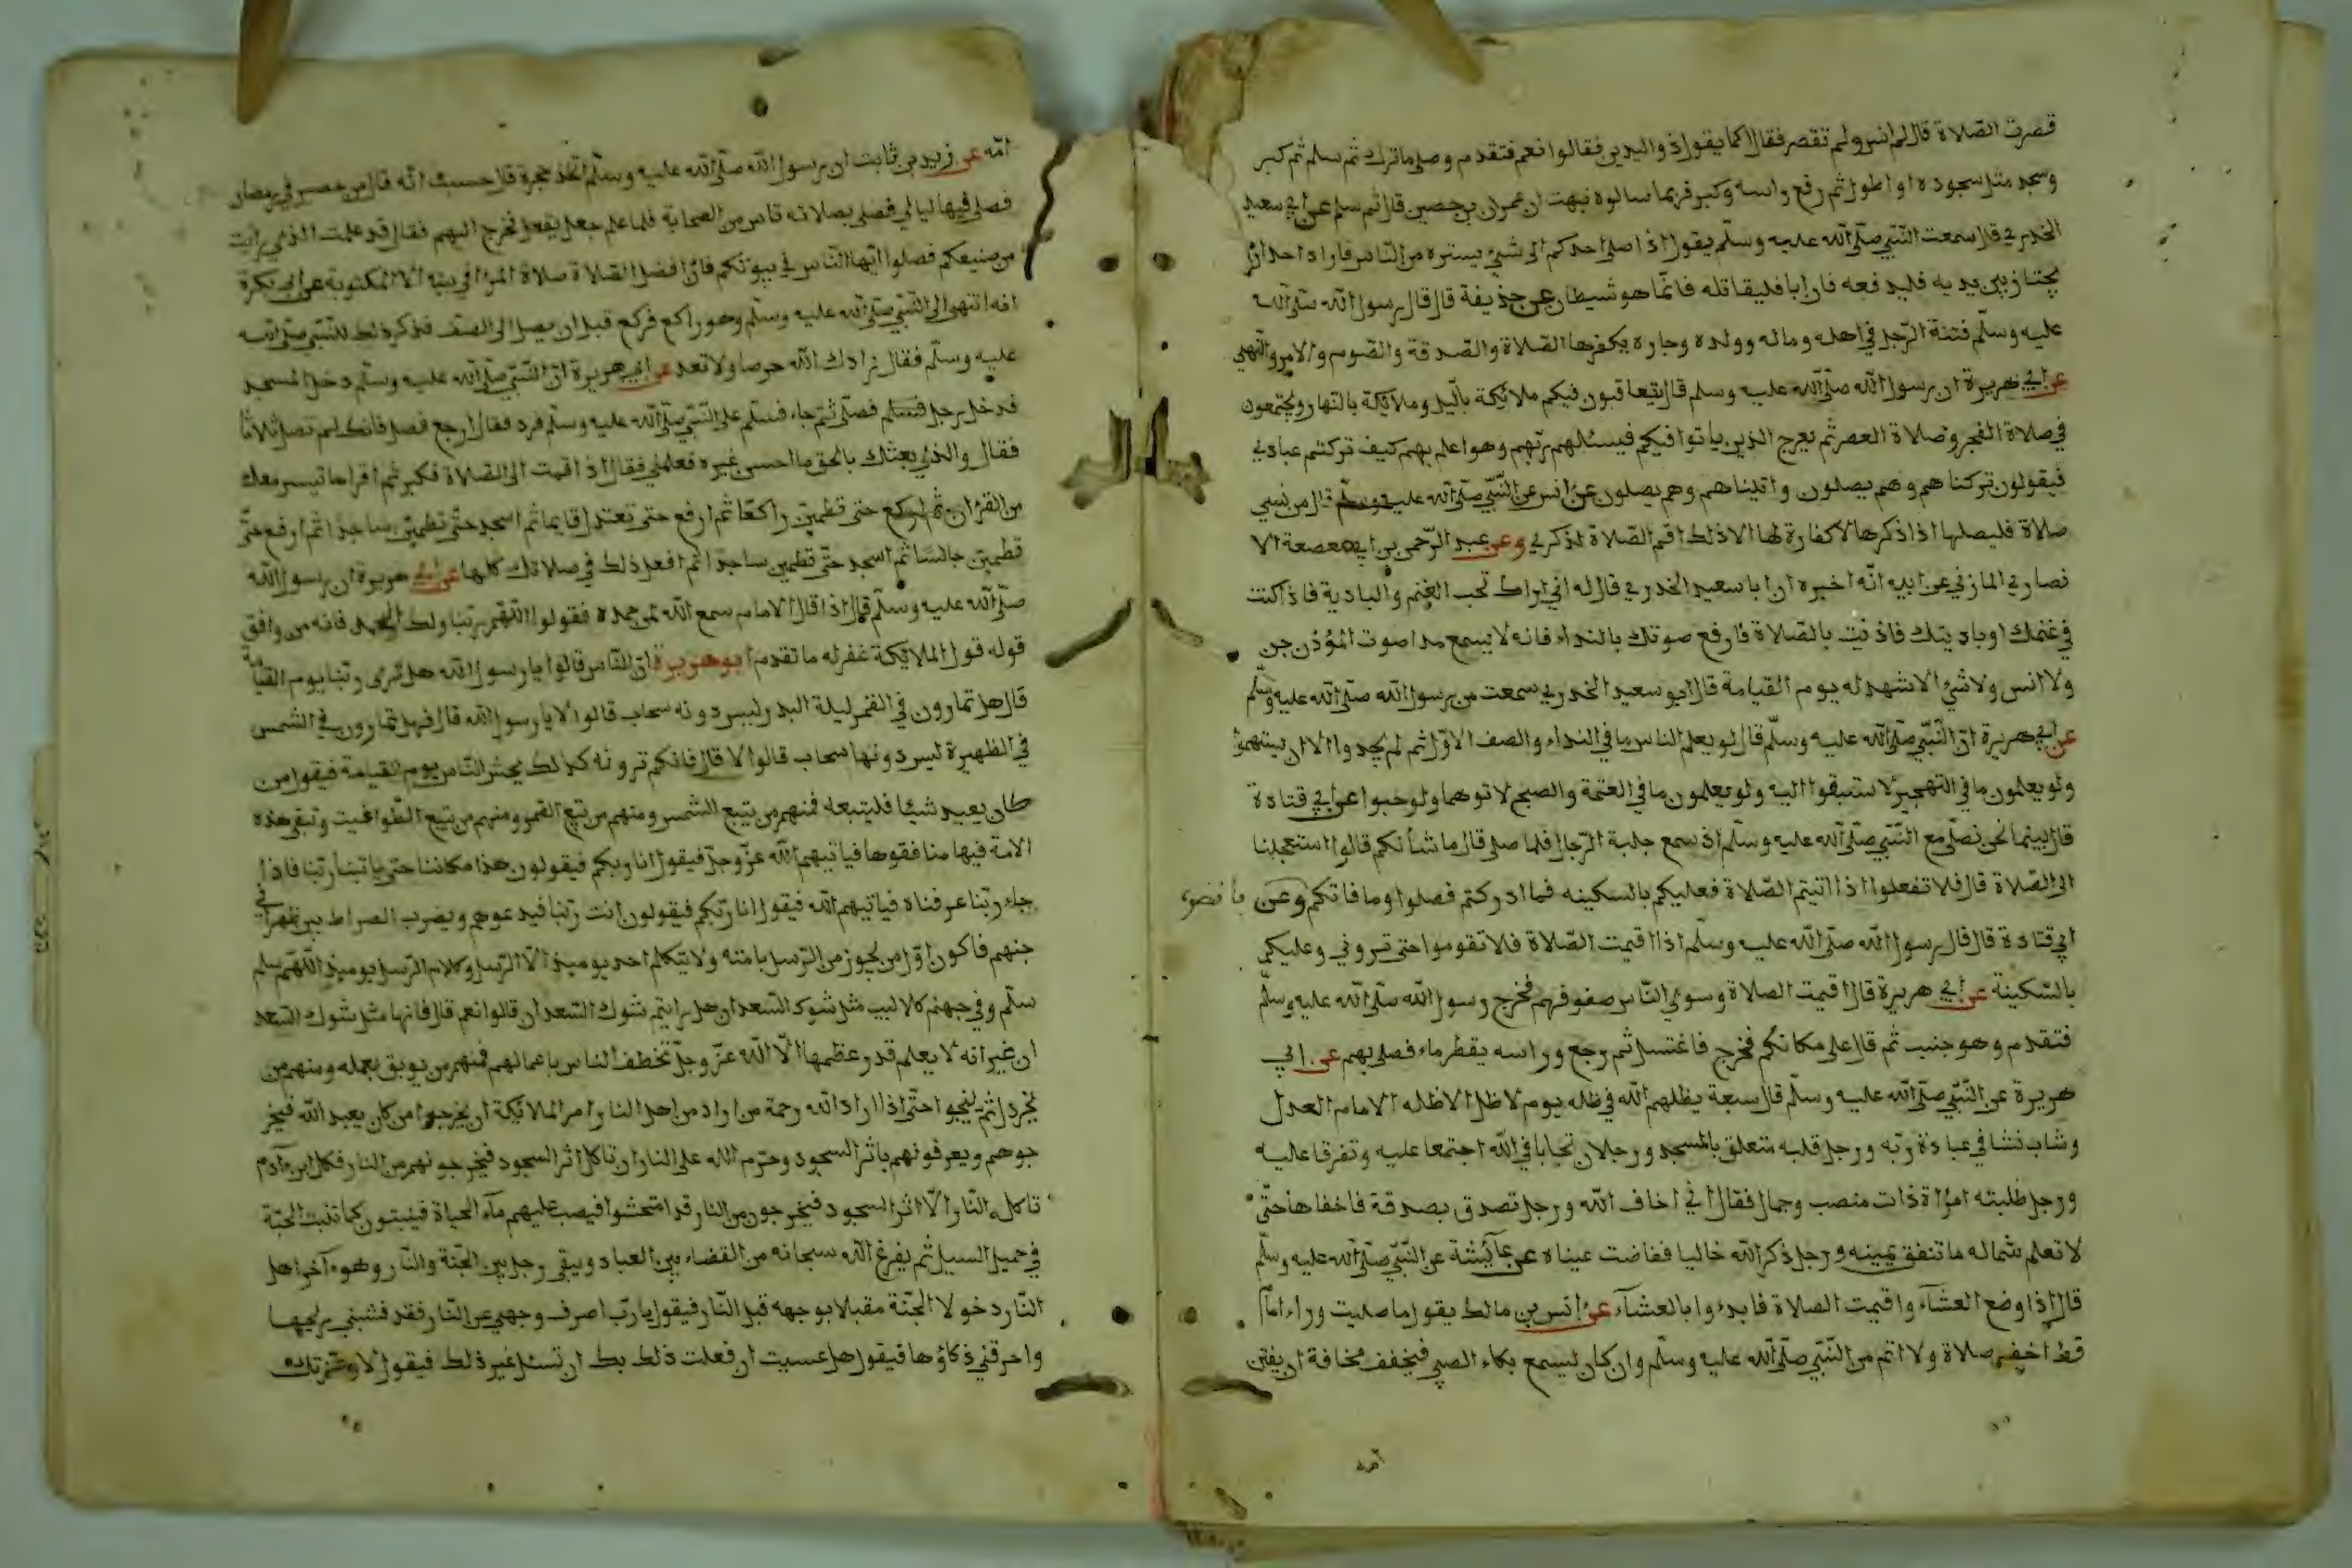 قصرت الصّلاة قال لم انس ولم تقصر فقال اكما يقول ذو اليدين فقالوا نعم فتقدم وصلى ما ترك ثم سلم ثم كبر
وسجد مثل سجوده او اطول ثم رفع راسه وكبر فربما سالوه نبهت ان عمران بن حصين قال ثم سلم عن ابي سعيد
الخدري قال سمعت النّبي صلّى الله عليه وسلّم يقول اذا صلى احدكم الى شيئ يستره من النّاس فاراد احد ان
يجتاز بين يديه فليدفعه فان ابا فليقاتله فانّما هو شيطان عن حذيفة قال قال رسول الله صلّى الله
عليه وسلّم فتنة الرّجل في اهله وماله وولده وجاره يكفرها الصّلاة والصّدقة والصّوم والامر والنّهي
عن ابي هريرة ان رسول الله صلّى الله عليه وسلم قال يتعاقبون فيكم ملائكة بالّيل وملائكة بالنّهار ويجتمعون
في صلاة الفجر وصلاة العصر ثم يعرج الذين ياتوا فيكم فيسئلهم ربّهم وهو اعلم بهم كيف تركتم عبادي
فيقولون تركناهم وهم يصلون واتيناهم وهم يصلون عن انس عن النّبيّ صلّى الله عليه وسلّم قال من نسي
صلاة فليصلها اذا ذكرها لا كفارة لها الا ذلك اقم الصّلاة لذكري وعن عبد الرّحمن بن ابي صعصعة الا
نصاري المازني عن ابيه انّه اخبره ان ابا سعيد الخدري قال له انّي اراك تحب الغنم والبادية فاذا كنت
في غنمك او باديتك فاذنت بالصّلاة فارفع صوتك بالنداء فانه لا يسمع مدا صوت المؤذن جن
ولا انس ولا شيئ الا شهد له يوم القيامة قال ابو سعيد الخدري سمعت من رسول الله صلّى الله عليه وسلّم
عن ابي هريرة انّ النّبيّ صلّى الله عليه وسلّم قال لو يعلم الناس ما في النداء والصف الاوّل ثم لم يجدوا الا ان يستهموا
ولو يعلمون ما في التهجير لاستبقوا اليه ولو يعلمون ما في العتمة والصبح لاتوهما ولو حبوا عن ابي قتادة
قال بينما نحن نصلّي مع النّبيّ صلّى الله عليه وسلّم اذ سمع جلبة الرّجال فلما صلى قال ما شأنكم قالوا استعجلنا
الى الصّلاة قال فلا تفعلوا اذا اتيتم الصّلاة فعليكم بالسكينه فما ادركتم فصلوا وما فاتكم وعن
ابي قتادة قال قال رسول الله صلّى الله عليه وسلّم اذا اقيمت الصّلاة فلا تقوموا حتى تروني وعليكم
بالسّكينة عن ابي هريرة قال اقيمت الصلاة وسوى النّاس صفوفهم فخرج رسول الله صلّى الله عليه وسلّم
فتقدم وهو جنب ثم قال على مكانكم فخرج فاغتسل ثم رجع وراسه يقطر ماء فصلى بهم عن ابي
هريرة عن النّبيّ صلّى الله عليه وسلّم قال سبعة يظلهم الله في ظله يوم لا ظل الا ظله الامام العدل
وشاب نشا في عبادة ربّه ورجل قلبه متعلق بالمسجد ورجلان تحابا في الله اجتمعا عليه وتفرقا عليه
ورجل طلبته امرأة ذات منصب وجمال فقال انّي اخاف الله ورجل تصدق بصدقة فاخفاها حتّى
لا تعلم شماله ما تنفق يمينه ورجل ذكر الله خاليا ففاضت عيناه عن عآئشة عن النّبيّ صلّى الله عليه وسلّم
قال اذا وضع العشآء واقيمت الصلاة فابدءوا بالعشآء عن انس بن مالك يقول ما صليت وراء امام
قط اخفّ صلاة ولا اتم من النّبيّ صلّى الله عليه وسلّم وان كان ليسمع بكاء الصبي فيخفف مخافة ان يفتن
امّه
امّه عن زيد بن ثابت ان رسول الله صلّى الله عليه وسلّم اتّخذ حجرة قال حسبت انّه قال من حصير في رمضان
فصلى فيها ليالي فصلى بصلاته ناس من الصحابة فلما علم جعل يفعل فخرج اليهم فقال قد علمت الذي رايت
من صنيعكم فصلوا ايّها النّاس في بيوتكم فانّ افضل الصّلاة صلاة المرء في بيته الا المكتوبة عن ابي بكرة
انه انتهى الى النّبيّ صلّى الله عليه وسلّم وهو راكع فركع قبل ان يصل الى الصّف فذكر ذلك للنّبيّ صلّى الله
عليه وسلّم فقال زادك الله حرصا ولا تعد عن ابي هريرة انّ النّبيّ صلّى الله عليه وسلّم دخل المسجد
فدخل رجل فصلّى ثمّ جاء فسلّم على النّبيّ صلّى الله عليه وسلّم فرد فقال ارجع فصل فانك لم تصل ثلاثا
فقال والذي بعثك بالحق ما احسن غيره فعلمني فقال اذا قمت الى الصّلاة فكبر ثم اقرا ما تيسر معك
من القرءان ثم اركع حتى تطمئن راكعًا ثم ارفع حتى تعتدل قايما ثم اسجد حتّى تطمئن ساجدا ثم ارفع حتّى
تطمئن جالسًا ثم اسجد حتّى تطمئن ساجدا ثم افعل ذلك في صلاتك كلها عن ابي هريرة ان رسول الله
صلّى الله عليه وسلّم قال اذا قال الامام سمع الله لمن حمده فقولوا اللّهم ربّنا ولك الحمد فانه من وافق
قوله قول الملائكة غفر له ما تقدم ابو هريرة ان النّاس قالوا يا رسول الله هل نرى ربّنا يوم القيامة
قال هل تمارون في القمر ليلة البدر ليس دونه سحاب قالوا لا يا رسول الله قال فهل تمارون في الشمس
في الظهيرة ليس دونها سحاب قالوا لا قال فانكم ترونه كذلك يحشر النّاس يوم القيامة فيقول من
كان يعبد شيئا فليتبعه فمنهم من يتبع الشمس ومنهم من يتبع القمر ومنهم من يتبع الطّواغيت وتبقى هذه
الامة فيها منافقوها فياتيهم الله عزّ وجلّ فيقول انا ربكم فيقولون هذا مكاننا حتى ياتينا ربّنا فاذا
جاء ربّنا عرفناه فياتيهم الله فيقول انا ربّكم فيقولون انت ربّنا فيدعوهم ويضرب الصراط بين ظهراني
جهنم فاكون اوّل من يجوز من الرّسل بامته ولا يتكلم احد يوميذ الّا الرّسل وكلام الرّسل يوميذ اللّهم سلم
سلّم وفي جهنم كلاليب مثل شوك السّعدان هل رايتم شوك السّعدان قالوا نعم قال فانها مثل شوك السّعد
ان غير انه لا يعلم قدر عظمها الّا الله عزّ وجلّ تخطف الناس باعمالهم فمنهم من يوبق بعمله ومنهم من
يخردل ثم ينجو احتّى اذا اراد الله رحمة من اراد من اهل النار امر الملائكة ان يخرجوا من كان يعبد الله فيخر
جوهم ويعرفونهم باثر السجود وحرّم الله على النار ان تاكل اثر السجود فيخرجونهم من النار فكل ابن ءادم
تاكله النّار الّا اثر السجود فيخرجون من النار قد امتحشوا فيصب عليهم مآء الحياة فينبتون كما تنبت الحبّة
في حميل السيل ثم يفرغ الله سبحانه من القضاء بين العباد ويبقى رجل بين الجنّة والنّار وهو ءاخر اهل
النّار دخولا الجنّة مقبلا بوجهه قبل النّار فيقول يا ربّ اصرف وجهي عن النّار فقد قشبني ريحها
واحرقني ذكاؤها فيقول هل عسيت ان فعلت ذلك بك ان تسئل غير ذلك فيقول لا وعزتك